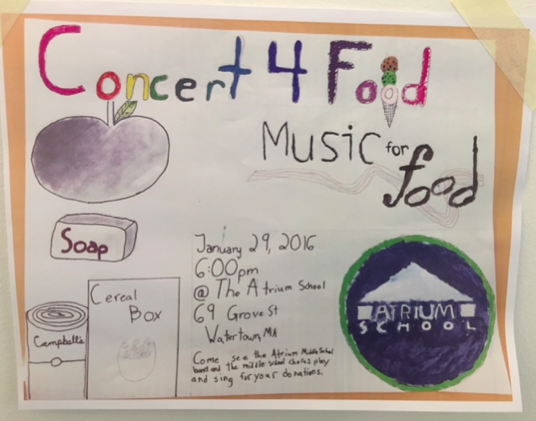 Concert 4 Food
Music for food
Soap
Cereal
Box
Campbell's
January 29, 2016
6:00pm
@ The Atrium School
69 Grove St
Watertown, MA
Come see the Atrium Middle School
band and the middle school chorus play
and sing for your donations.
ATRIUM
SCHOOL